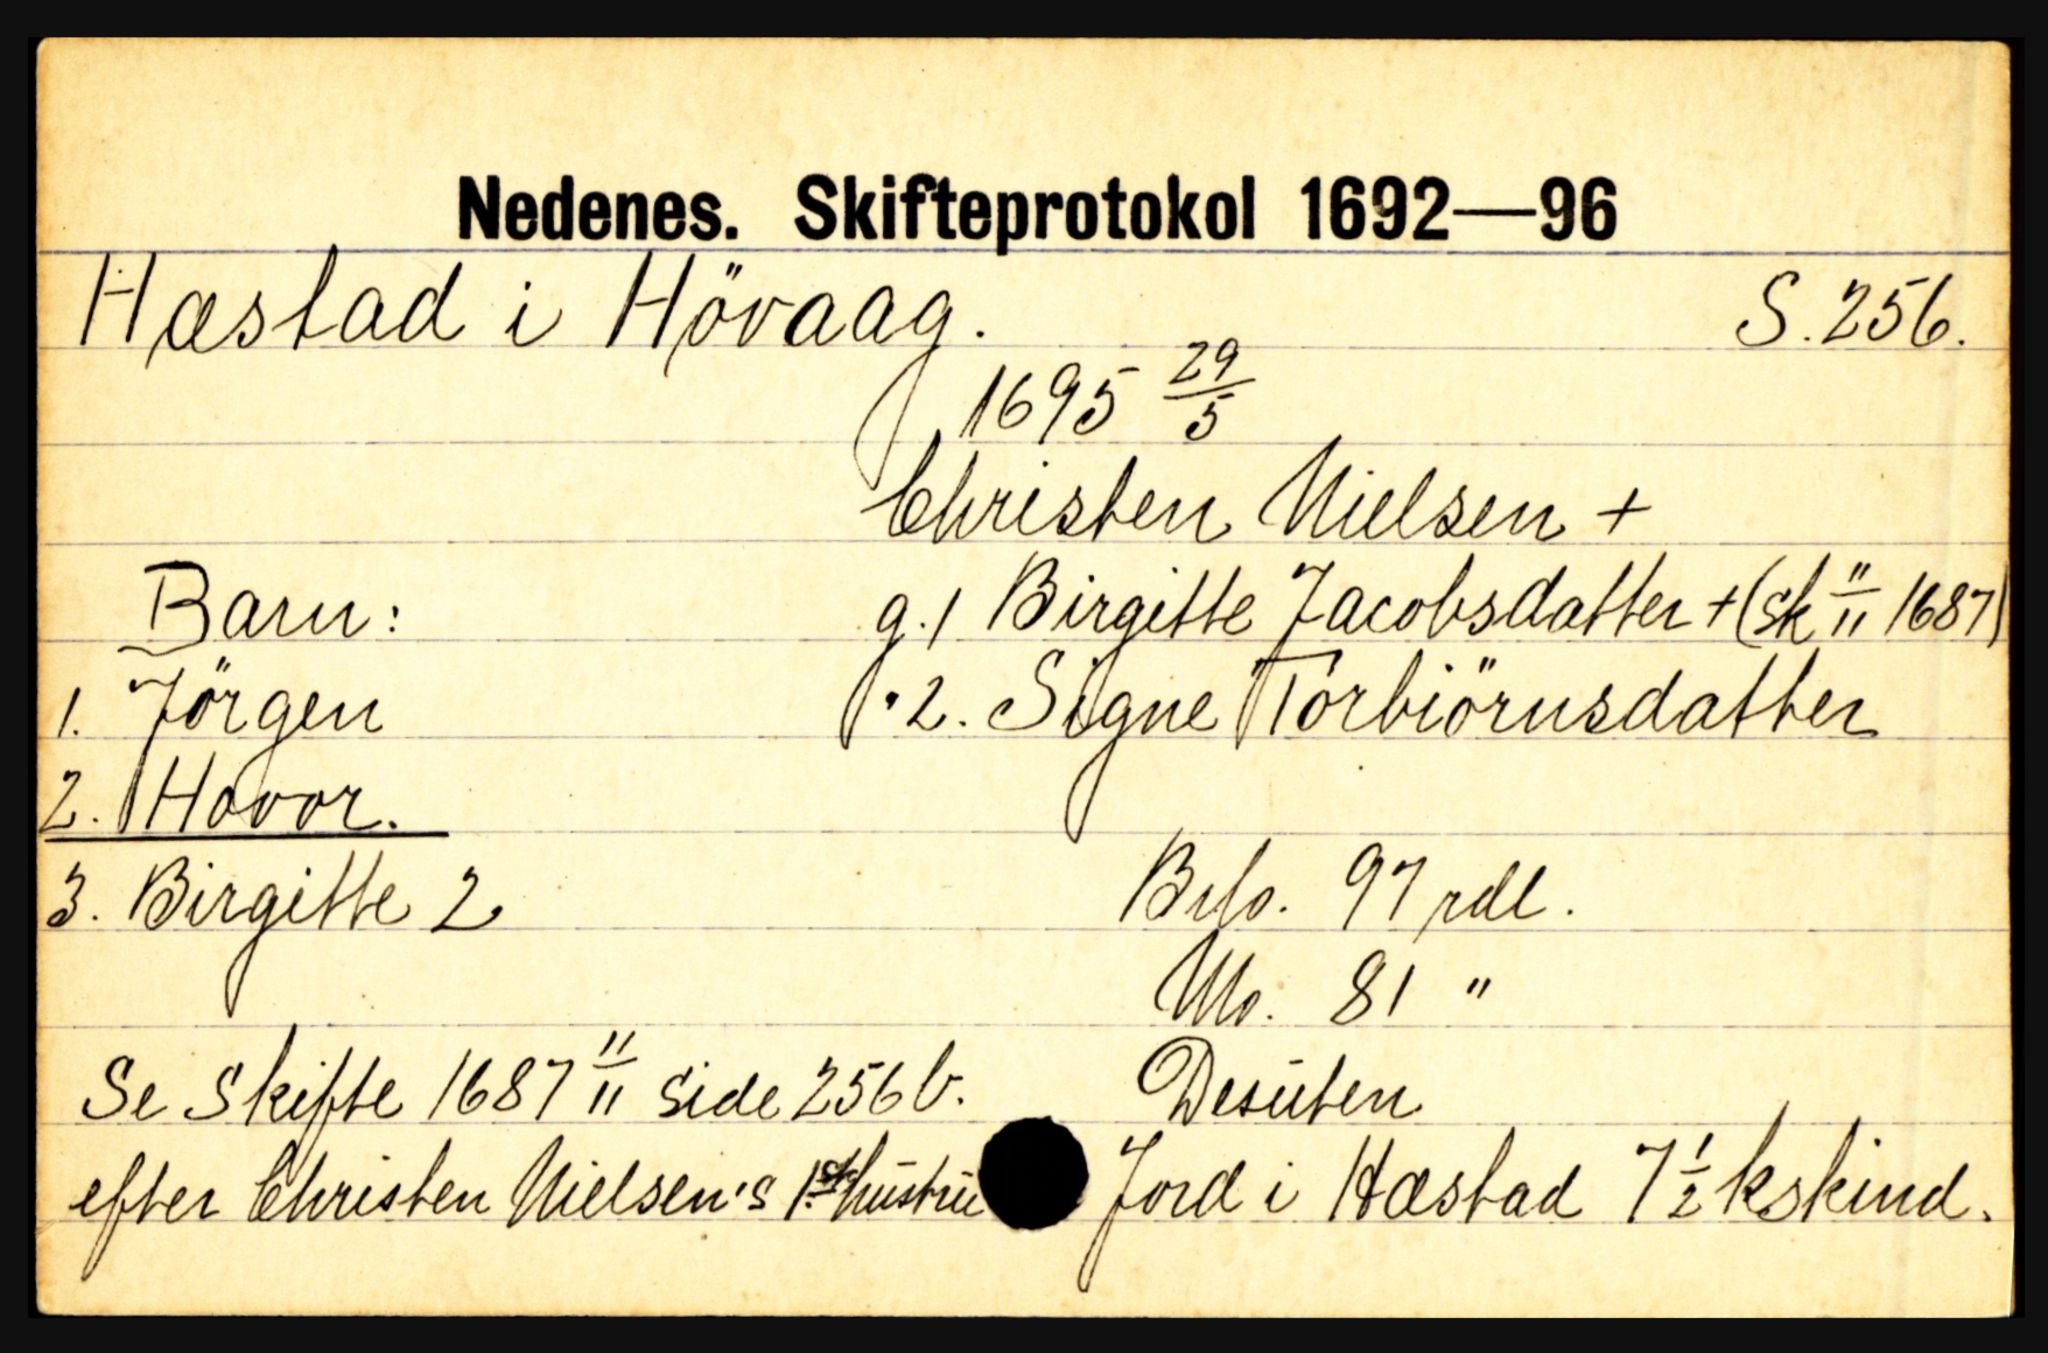 Nedenes. Skifteprotokol 1692—96
Hæstad i Hövaag. S. 256.
1695 29/5
Christen Nielsen +
Barn: g. 1 Birgitte Jacobsdatter + (sk 11/11 1687)
1. Jörgen " 2. Signe Torbiörnsdatter
2. Hovor.
3. Birgitte 2 Brto. 97 rdl.
No. 81 "
Se Skifte 1687 11/11 side 256 b. Desuten
efter Christen Nielsen's 1ste hustru Jord i Hæstad 7 1/2 kskind.